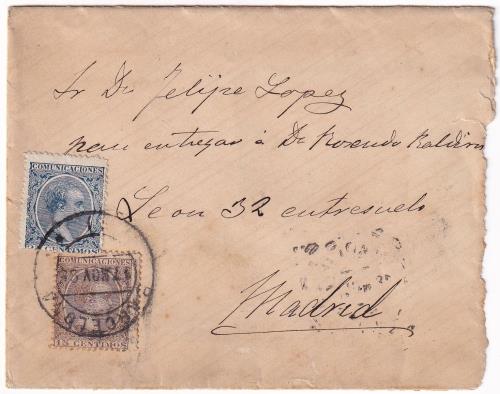 Sr Dn Felipe Lopez
para entregar á Dn Rosendo
Leon 32 entresuelo
Madrid
COMUNICACIONES
CENTIMOS
COMUNICACIONES
15 CENTIMOS
BARCELONA
17 NOV